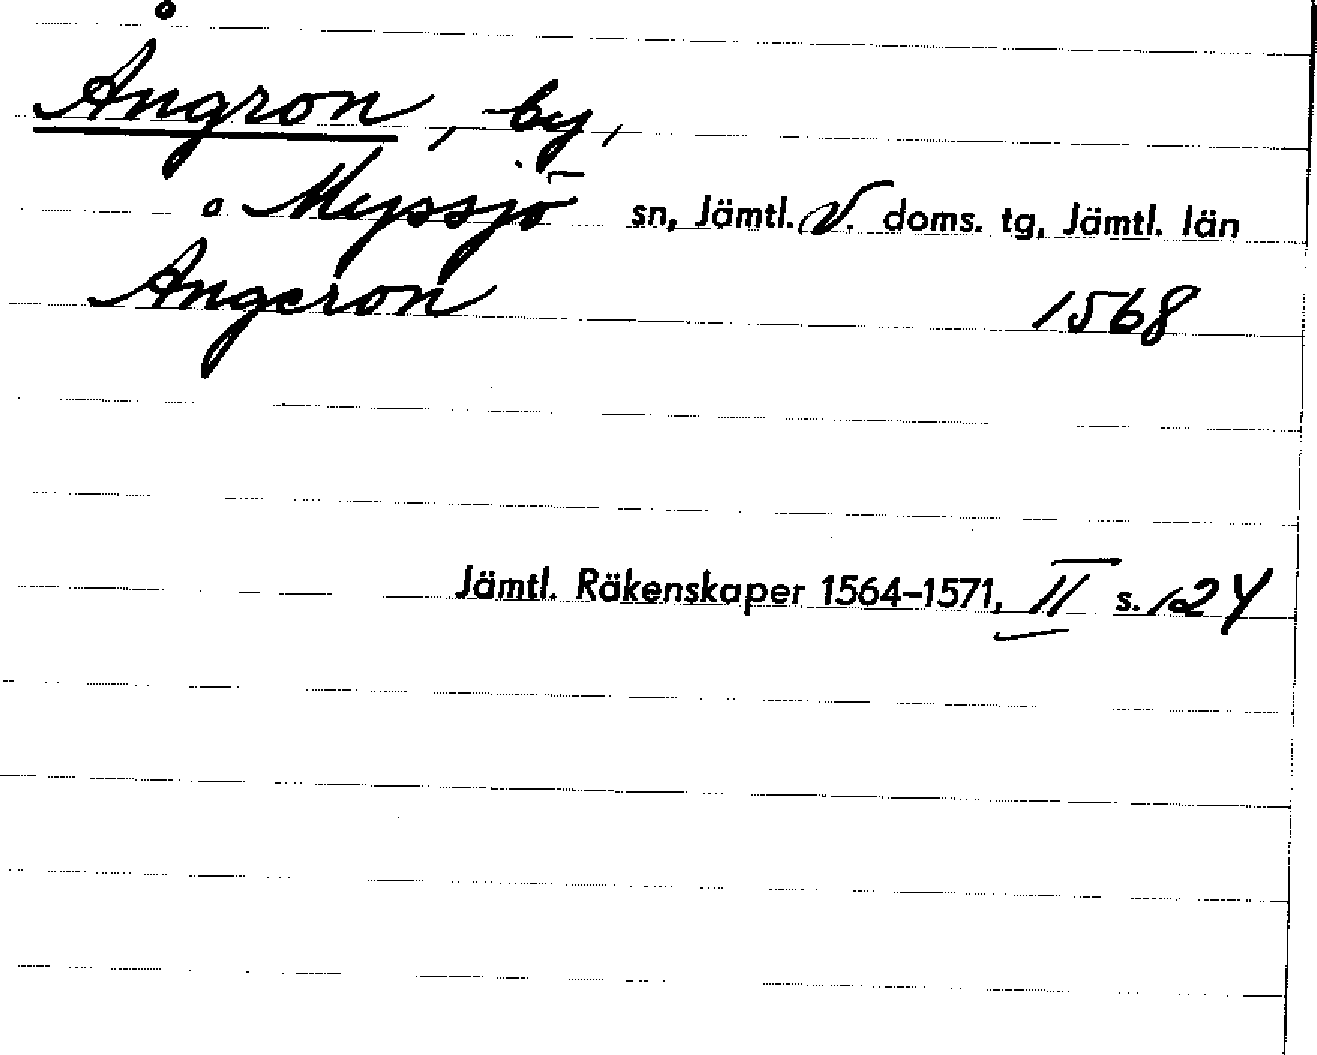 Ångron, by,
Myssjö sn, Jämtl. V. doms. tg, Jämtl. län
Ångeron 1568
Jämtl. Räkenskaper 1564–1571, II s. 124